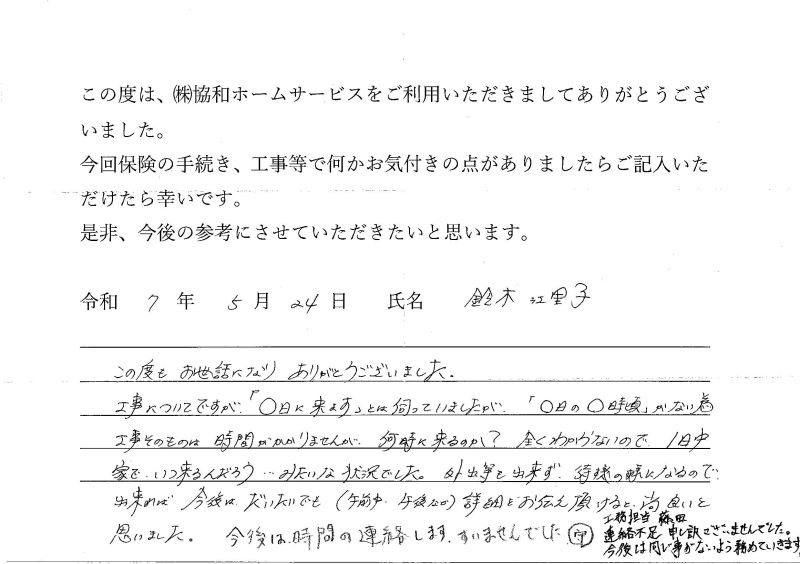 この度は、㈱協和ホームサービスをご利用いただきましてありがとうござ
いました。
今回保険の手続き、工事等で何かお気付きの点がありましたらご記入いた
だけたら幸いです。
是非、今後の参考にさせていただきたいと思います。
令和 7 年 5 月 24 日 氏名 鈴木 江里子
この度も お世話になり ありがとうございました。
工事についてですが、「〇日に来ます」とは伺っていましたが、「〇日の〇時頃」がない為
工事そのものは 時間がかかりませんが、何時に来るのか? 全くわからないので、1日中
家で、いつ来るんだろう…みたいな状況でした。外出等も出来ず、待機の様になるので
出来れば 今後は だいたいでも (午前中、午後など) 詳細をお伝え頂けると、尚良いと
思いました。 今後は、時間の連絡します。すいませんでした 守
工務担当 藤田
連絡不足 申し訳ございませんでした。
今後は同じ事がないよう務めていきます